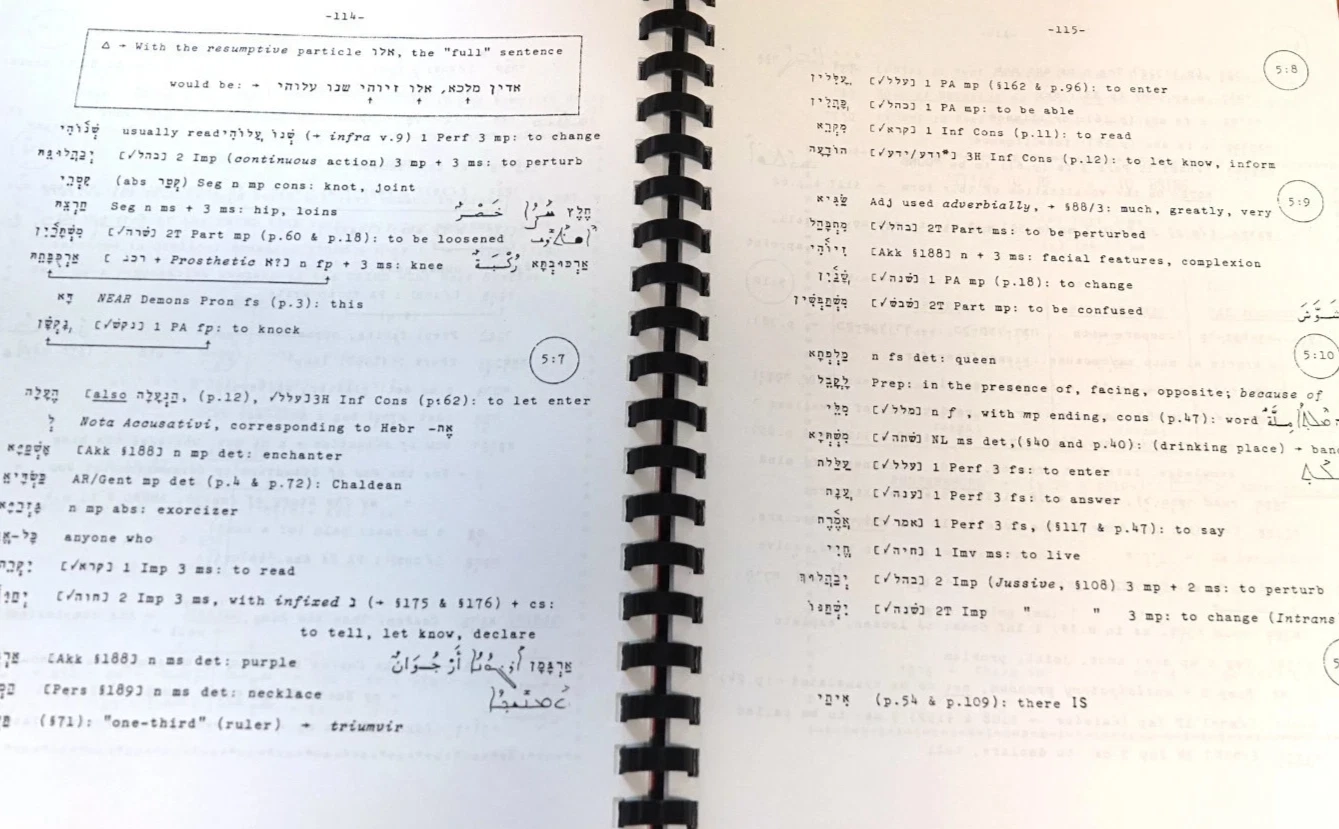 -114-
Δ → With the resumptive particle אלו, the "full" sentence
would be: → אדין מלכא, אלו זיוהי שנו עלוהי
usually read שְׁנוֹ עֲלוֹהִי (→ infra v.9) 1 Perf 3 mp: to change
[√בהל] 2 Imp (continuous action) 3 mp + 3 ms: to perturb
(abs קְטַר) Seg n mp cons: knot, joint
Seg n ms + 3 ms: hip, loins
[√שרה] 2T Part mp (p.60 & p.18): to be loosened
[רכב + Prosthetic א?] n fp + 3 ms: knee רُكْبَةٌ
דָּא NEAR Demons Pron fs (p.3): this
נָקְשָׁן, [√נקש] 1 PA fp: to knock
5:7
הֶעָלָה [also הַנְעָלָה, (p.12), √עלל]3H Inf Cons (p:62): to let enter
לְ Nota Accusativi, corresponding to Hebr אֶת-
[Akk §188] n mp det: enchanter
AR/Gent mp det (p.4 & p.72): Chaldean
n mp abs: exorcizer
anyone who
[√קרא] 1 Imp 3 ms: to read
[√חוה] 2 Imp 3 ms, with infixed נ (→ §175 & §176) + cs:
to tell, let know, declare
[Akk §188] n ms det: purple
[Pers §189] n ms det: necklace
(§71): "one-third" (ruler) → triumvir
-115-
5:8
[√עלל] 1 PA mp (§162 & p.96): to enter
כָּהֲלִין [√כהל] 1 PA mp: to be able
מִקְרֵא [√קרא] 1 Inf Cons (p.11): to read
הוֹדָעָה [√ידע/ודע*] 3H Inf Cons (p.12): to let know, inform
5:9
שַׂגִּיא Adj used adverbially, → §88/3: much, greatly, very
מִתְבָּהַל [√בהל] 2T Part ms: to be perturbed
זִיוֹהִי [Akk §188] n + 3 ms: facial features, complexion
שָׁנַיִן, [√שנה] 1 PA mp (p.18): to change
מִשְׁתַּבְּשִׁין [√שבש] 2T Part mp: to be confused
5:10
מַלְכְּתָא n fs det: queen
לָקֳבֵל Prep: in the presence of, facing, opposite; because of
מִלֵּי [√מלל] n f, with mp ending, cons (p.47): word
מִשְׁתְּיָא [√שתה] NL ms det,(§40 and p.40): (drinking place) →
עַלֲלַת [√עלל] 1 Perf 3 fs: to enter
עֲנָת [√ענה] 1 Perf 3 fs: to answer
אֲמֶרֶת [√אמר] 1 Perf 3 fs, (§117 & p.47): to say
חֱיִי [√חיה] 1 Imv ms: to live
יְבַהֲלוּךְ [√בהל] 2 Imp (Jussive, §108) 3 mp + 2 ms: to perturb
יִשְׁתַּנּוֹ [√שנה] 2T Imp " " 3 mp: to change (Intrans
אִיתַי (p.54 & p.109): there IS